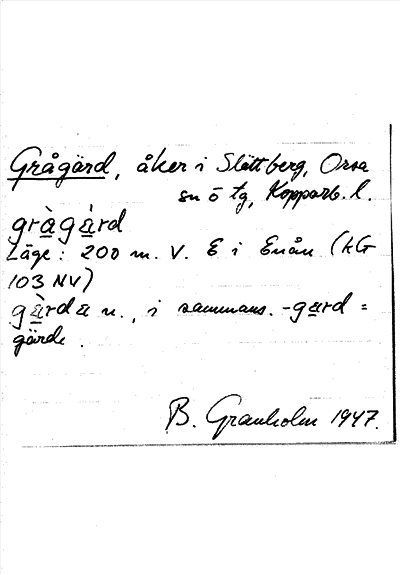 Grågärd, åker i Slättberg, Orsa
sn o tg, Kopparb. l.
gràgàrd
Läge: 200 m. V. E i Enån (KG
103 NV)
gàrda n., i sammans. -gard =
gärde.
B. Granholm 1947.